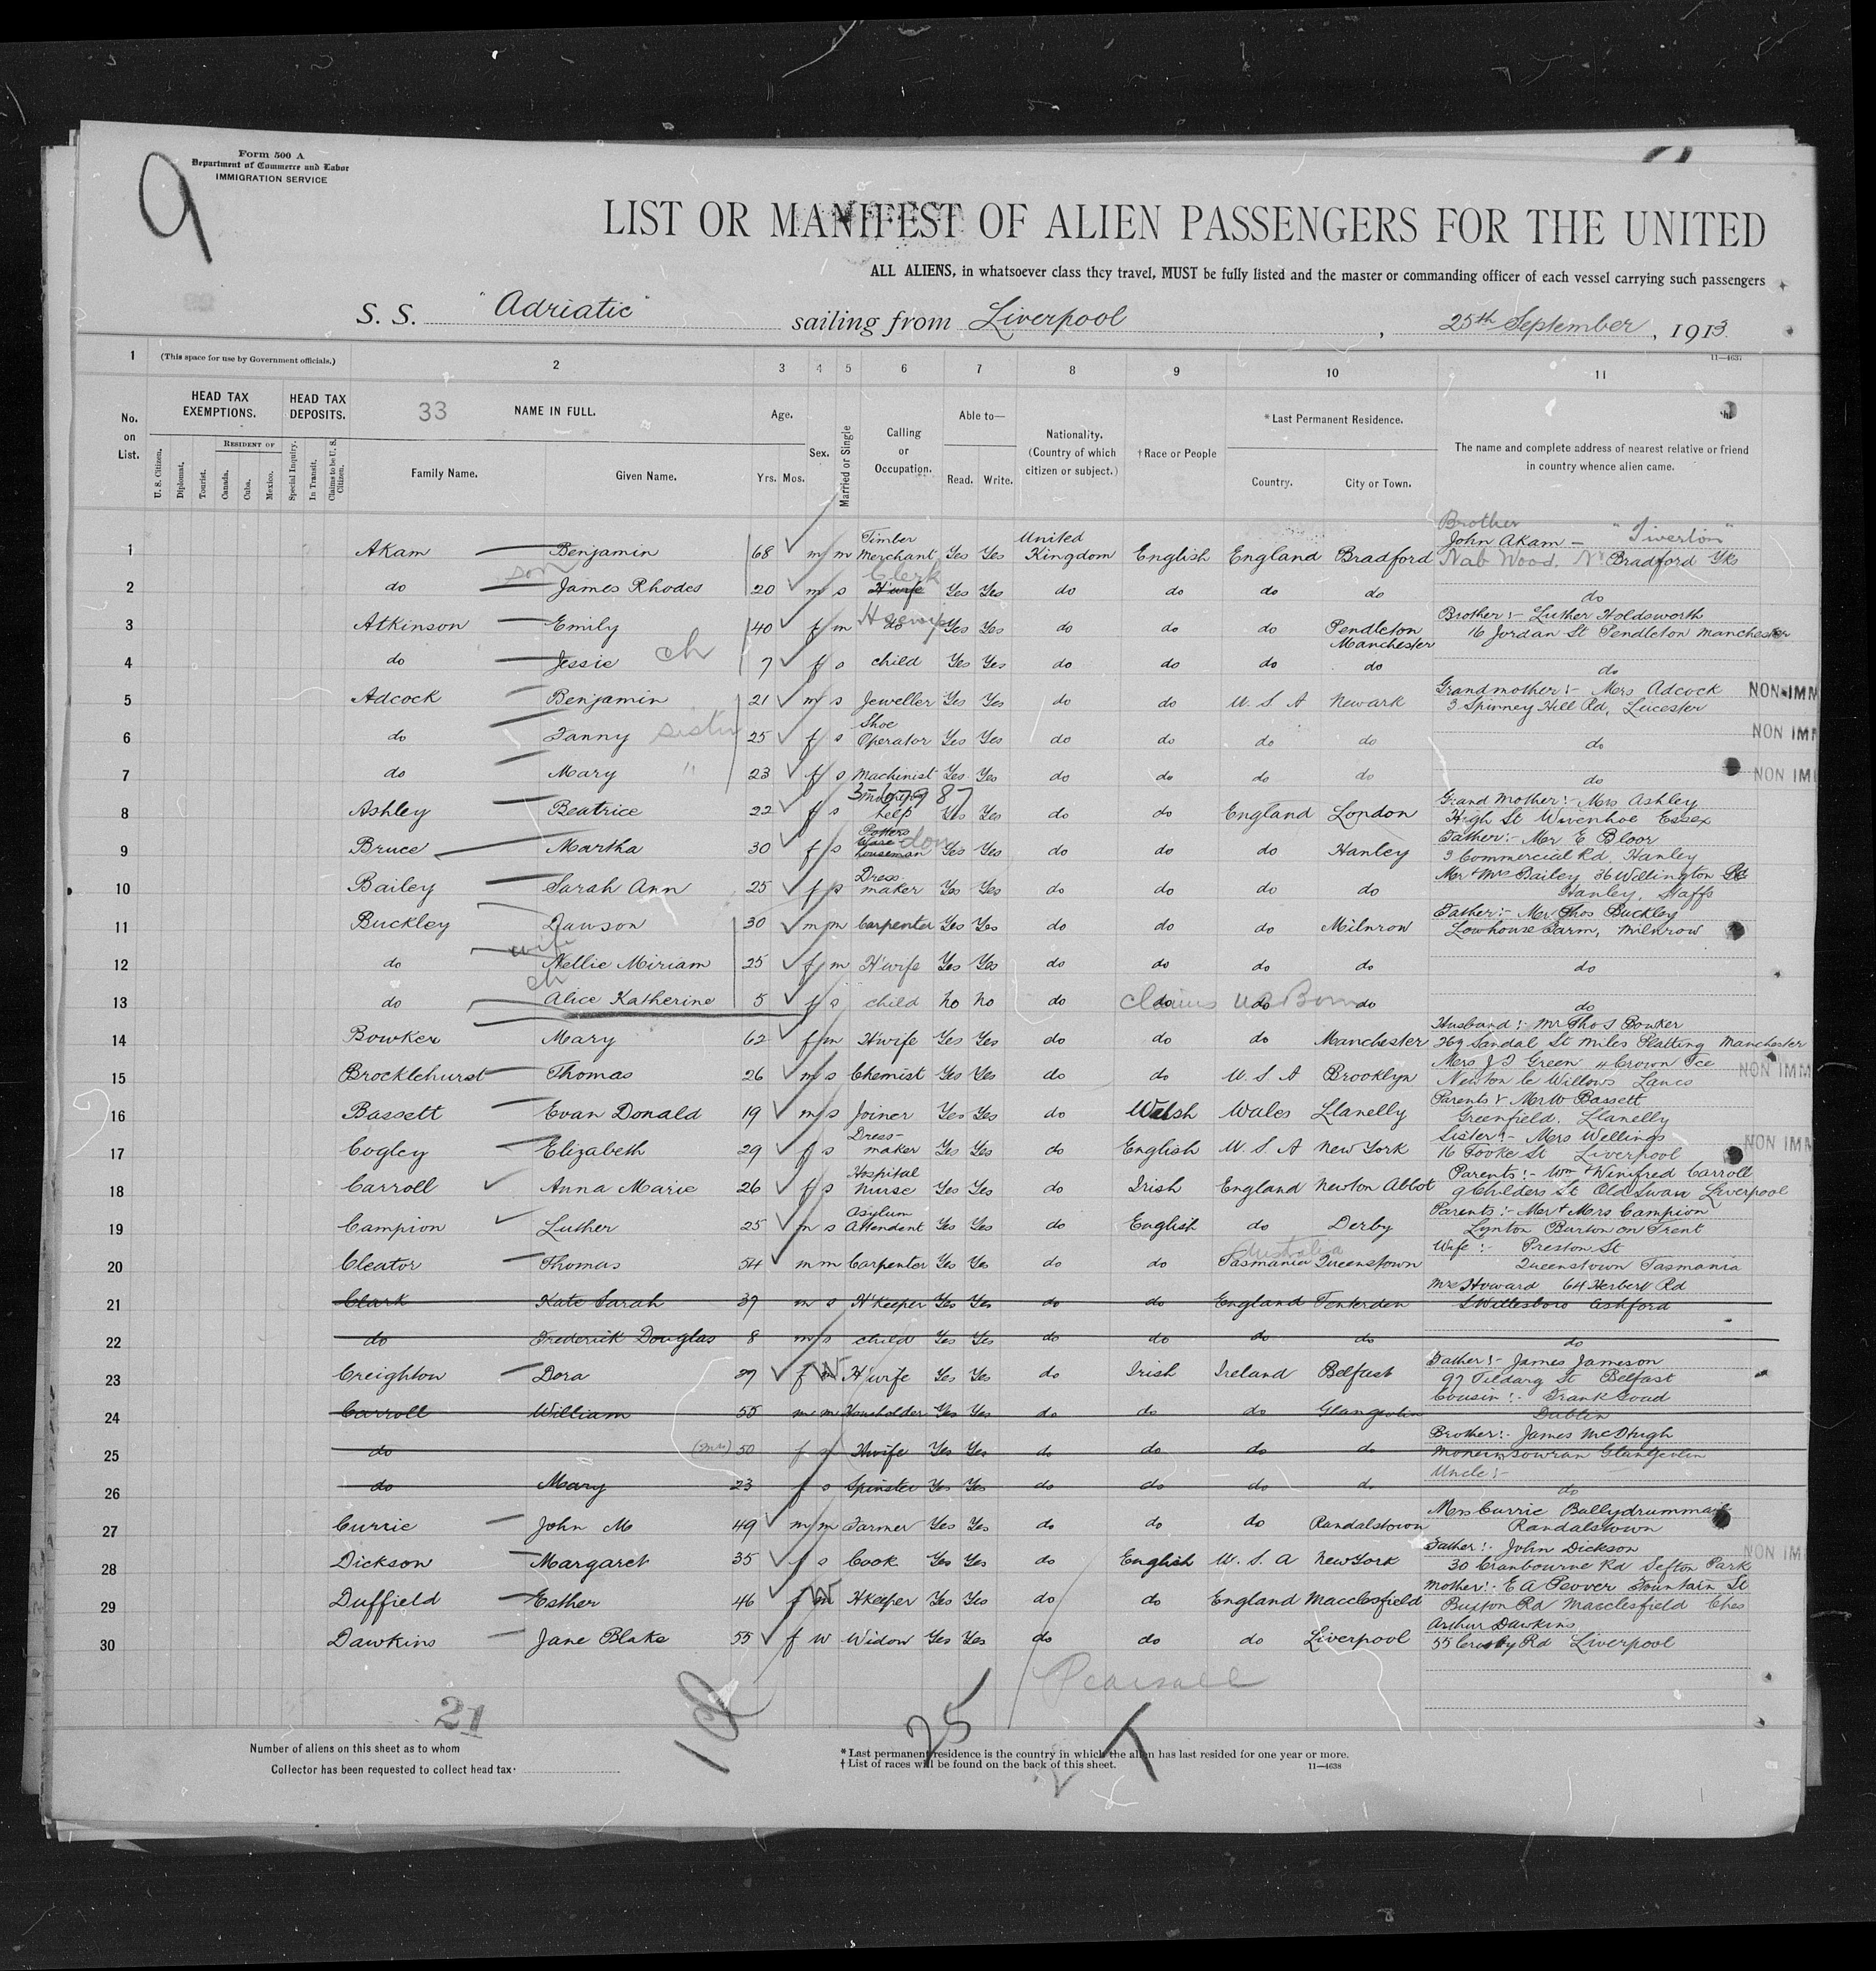 9
Form 500 A
Department of Commerce and Labor
IMMIGRATION SERVICE
LIST OR MANIFEST OF ALIEN PASSENGERS FOR THE UNITED
ALL ALIENS, in whatsoever class they travel, MUST be fully listed and the master or commanding officer of each vessel carrying such passengers
S. S. "Adriatic" sailing from Liverpool, 25th September, 1913
11—4637
1 (This space for use by Government officials.) 2 3 4 5 6 7 8 9 10 11
No. on List.
HEAD TAX EXEMPTIONS.
U. S. Citizen. Diplomat. Tourist. RESIDENT OF Canada. Cuba. Mexico.
HEAD TAX DEPOSITS.
Special Inquiry. In Transit. Claims to be U. S. Citizen.
33 NAME IN FULL.
Family Name. Given Name.
Age. Yrs. Mos.
Sex.
Married or Single
Calling or Occupation.
Able to— Read. Write.
Nationality. (Country of which citizen or subject.)
†Race or People
*Last Permanent Residence. Country. City or Town.
The name and complete address of nearest relative or friend in country whence alien came.
1 Akam Benjamin 68 m m Timber Merchant Yes Yes United Kingdom English England Bradford Brother John Akam - "Tiverton" Nab Wood. Nr Bradford Yks
2 do son James Rhodes 20 m s H'wife Clerk Yes Yes do do do do do
3 Atkinson Emily 40 f m do Yes Yes do do do Pendleton Manchester Brother:- Luther Holdsworth 16 Jordan St Pendleton Manchester
4 do Jessie ch 7 f s child Yes Yes do do do do do
5 Adcock Benjamin 21 m s Jeweller Yes Yes do do U. S. A Newark Grandmother:- Mrs Adcock 3 Spinney Hill Rd, Leicester NON-IMM
6 do Fanny sister 25 f s Shoe Operator Yes Yes do do do do do NON IMM
7 do Mary " 23 f s Machinist Yes Yes do do do do do NON IMM
8 Ashley Beatrice 22 f s help Yes Yes do do England London Grand Mother:- Mrs Ashley High St Wivenhoe Essex
9 Bruce Martha 30 f s Potters Ware houseman dom Yes Yes do do do Hanley Father:- Mr E Bloor 3 Commercial Rd, Hanley
10 Bailey Sarah Ann 25 f s Dress-maker Yes Yes do do do do Mr & Mrs Bailey 36 Wellington Rd Hanley, Staffs
11 Buckley Dawson 30 m m Carpenter Yes Yes do do do Milnrow Father:- Mr Thos Buckley Lowhouse Farm, Milnrow
12 do wife Nellie Miriam 25 f m H'wife Yes Yes do do do do do
13 do ch Alice Katherine 5 f s child no no do do do do do Claims US Born
14 Bowker Mary 62 f m H'wife Yes Yes do do do Manchester Husband:- Mr Thos Bowker 269 Sandal St Miles Platting Manchester
15 Brocklehurst Thomas 26 m s Chemist Yes Yes do do U. S. A Brooklyn Mrs J T Green 4 Crown Tce Newton le Willows Lancs NON IMM
16 Bassett Evan Donald 19 m s Joiner Yes Yes do Welsh Wales Llanelly Parents Mr W Bassett Greenfield, Llanelly
17 Cogley Elizabeth 29 f s Dress-maker Yes Yes do English U. S. A New York Sister:- Mrs Wellings 16 Tooke St Liverpool NON IMM
18 Carroll Anna Marie 26 f s Hospital Nurse Yes Yes do Irish England Newton Abbot Parents:- Wm & Winifred Carroll 9 Childers St Old Swan Liverpool
19 Campion Luther 25 m s Asylum Attendent Yes Yes do English do Derby Parents:- Mr & Mrs Campion Lynton Burton on Trent
20 Cleator Thomas 54 m m Carpenter Yes Yes do do Australia Tasmania Queenstown Wife:- Preston St Queenstown Tasmania
21 Clark Kate Sarah 37 m s H'Keeper Yes Yes do do England Tenterden Mrs Howard 64 Herbert Rd S Willesboro Ashford
22 do Frederick Douglas 8 m s child Yes Yes do do do do do
23 Creighton Dora 27 f W H'wife Yes Yes do Irish Ireland Belfast Father:- James Jameson 97 Tildarg St Belfast
24 Carroll William 55 m m Householder Yes Yes do do do Glangevlin Cousin:- Frank Dublin
25 do (Mrs) 50 f H'wife Yes Yes do do do do Brother:- James McHugh Glangevlin
26 do Mary 23 f s Spinster Yes Yes do do do do Uncle:- do
27 Currie John M 49 m m Farmer Yes Yes do do do Randalstown Mrs Currie Randalstown
28 Dickson Margaret 35 f s Cook Yes Yes do English U. S. A New York Father:- John Dickson 30 Cranbourne Rd Sefton Park NON IMM
29 Duffield Esther 46 f W H'Keeper Yes Yes do do England Macclesfield Mother:- E A Peover Fountain St Buxton Rd Macclesfield Ches
30 Dawkins Jane Blake 55 f W Widow Yes Yes do do do Liverpool Arthur Dawkins 55 Crosby Rd Liverpool
Pearsall
21 25
Number of aliens on this sheet as to whom
Collector has been requested to collect head tax
* Last permanent residence is the country in which the alien has last resided for one year or more.
† List of races will be found on the back of this sheet. 11—4638